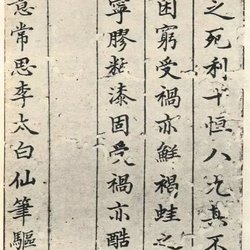 之死利十恒八九其不
困窮受禍亦鮮褐蛙之
寧膠粘漆固受禍亦酷
意常思李太白仙筆驅